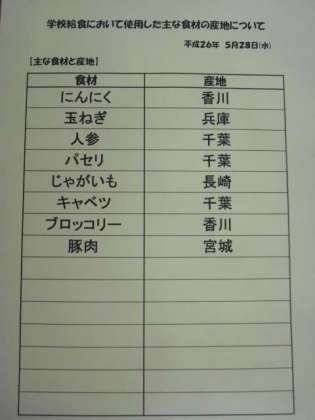 学校給食において使用した主な食材の産地について
平成26年 5月28日(水)
【主な食材と産地】
食材 産地
にんにく 香川
玉ねぎ 兵庫
人参 千葉
パセリ 千葉
じゃがいも 長崎
キャベツ 千葉
ブロッコリー 香川
豚肉 宮城